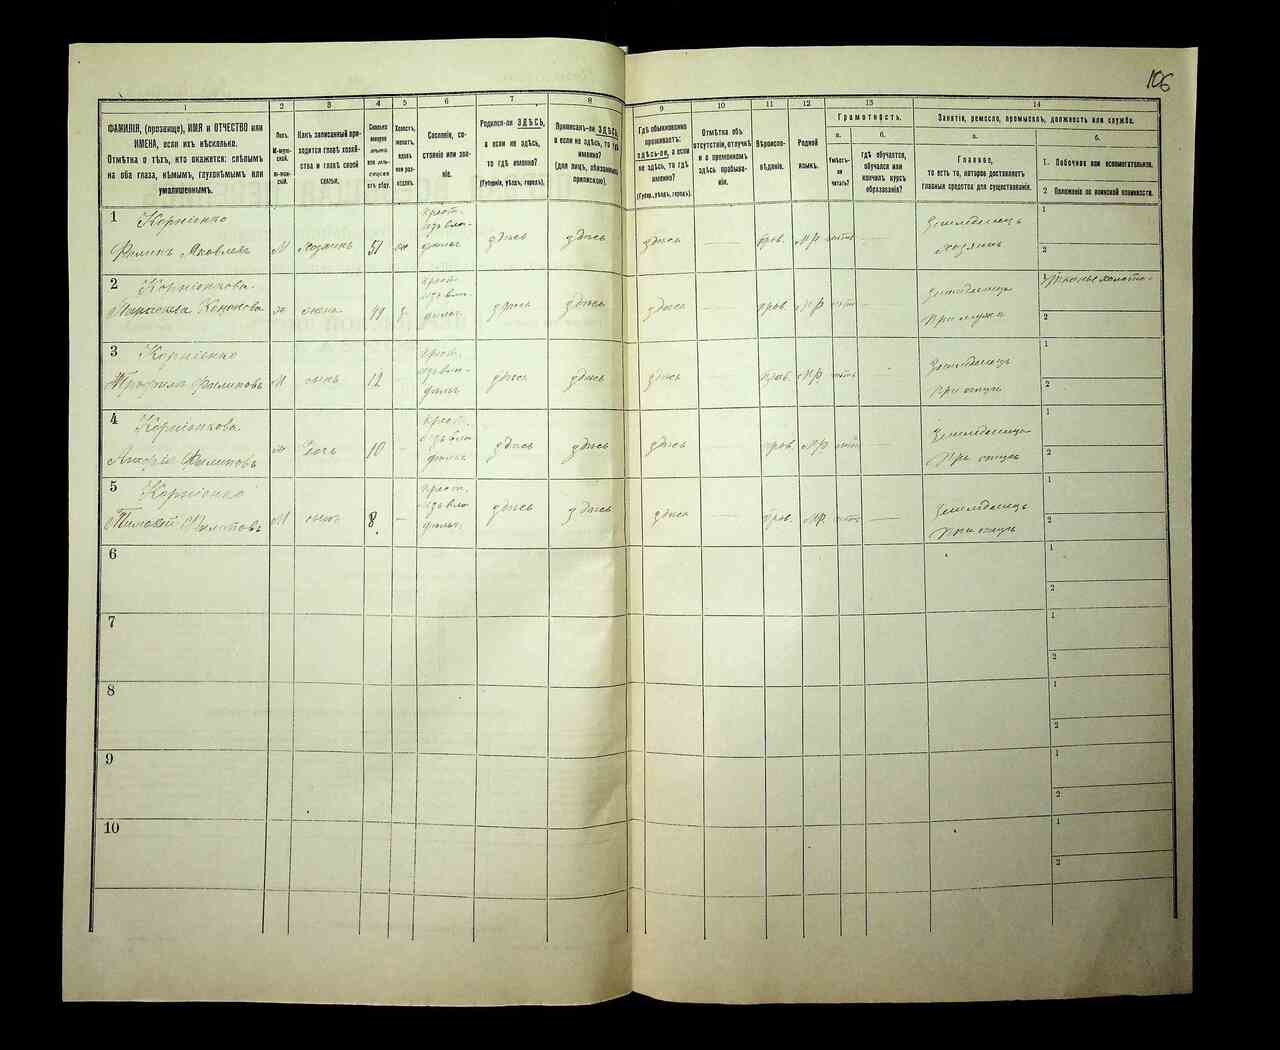 106
1
2
3
4
5
6
7
8
9
10
11
12
13
14
ФАМИЛІЯ, (прозвище), ИМЯ и ОТЧЕСТВО или
ИМЕНА, если ихъ нѣсколько.
Отмѣтка о тѣхъ, кто окажется: слѣпымъ
на оба глаза, нѣмымъ, глухонѣмымъ или
умалишеннымъ.
Полъ.
М-мужской.
Ж-женскій.
Какъ записанный приходится главѣ хозяйства и главѣ своей семьи.
Сколько минуло лѣтъ или мѣсяцевъ отъ роду.
Холостъ, женатъ, вдовъ или разведенъ.
Сословіе, состояніе или званіе.
Родился-ли ЗДѢСЬ,
а если не здѣсь,
то гдѣ именно?
(Губернія, уѣздъ, городъ).
Приписанъ-ли ЗДѢСЬ,
а если не здѣсь, то гдѣ
именно?
(для лицъ, обязанныхъ
припискою).
Гдѣ обыкновенно
проживаетъ:
здѣсь-ли, а если
не здѣсь, то гдѣ
именно?
(Губерн., уѣздъ, городъ).
Отмѣтка объ
отсутствіи, отлучкѣ
и о временномъ
здѣсь пребываніи.
Вѣроисповѣданіе.
Родной
языкъ.
Грамотность.
а.
Умѣетъ-ли читать?
б.
гдѣ обучается,
обучался или
кончилъ курсъ
образованія?
Занятіе, ремесло, промыселъ, должность или служба.
а.
Главное,
то есть то, которое доставляетъ
главныя средства для существованія.
б.
1. Побочное или вспомогательное.
2 Положеніе по воинской повинности.
1
Корніенко
Филипъ Яковлевъ
М
хозяинъ
51
здѣсь
здѣсь
здѣсь
—
прав.
МР
—
Земледѣлецъ
хозяинъ
1
2
2
Корніенкова
ж
жена
здѣсь
здѣсь
здѣсь
—
прав.
МР
—
при мужѣ
2
3
Корніенко
Трофимъ Филиповъ
М
сынъ
12
—
здѣсь
здѣсь
здѣсь
—
прав.
МР
—
Земледѣлецъ
при отцѣ
1
2
4
Корніенкова
Филиповъ
ж
дочь
10
—
здѣсь
здѣсь
здѣсь
—
прав.
МР
—
при отцѣ
1
2
5
Корніенко
Тимофей Филиповъ
М
сынъ
8
—
здѣсь
здѣсь
здѣсь
—
прав.
МР
—
Земледѣлецъ
при отцѣ
1
2
6
1
2
7
1
2
8
1
2
9
1
2
10
1
2